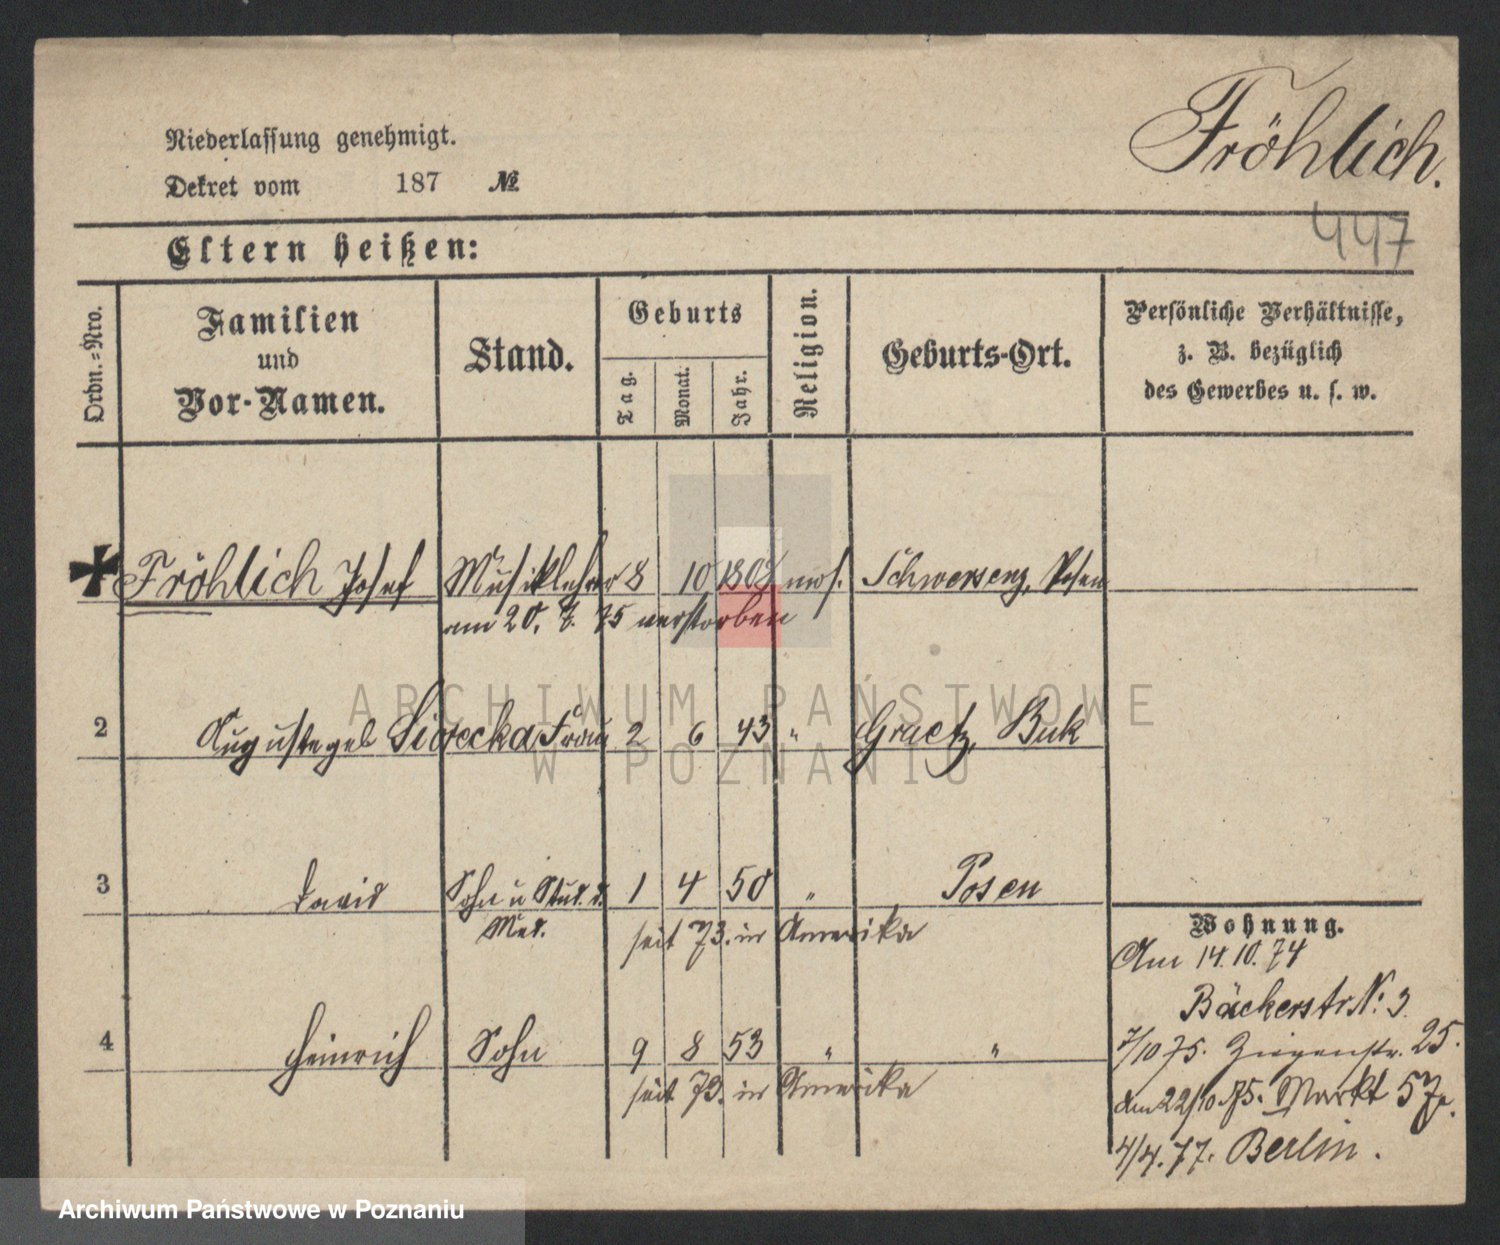 Fröhlich.
Niederlassung genehmigt.
Dekret vom 187 №
447
Eltern heißen:
Ordn.=Nro.
Familien
und
Vor-Namen.
Stand.
Geburts
Tag.
Monat.
Jahr.
Religion.
Geburts-Ort.
Persönliche Verhältnisse,
z. B. bezüglich
des Gewerbes u. s. w.
Fröhlich Josef Musiklehrer 8 10 1808 mos. Schwersenz, Posen
am 20. 7. 75 verstorben
2 Auguste geb Frau 2 6 43 " Graetz, Buk
3 David Sohn u Stud. d. 1 4 50 " Posen
Med. seit 73. in Amerika
4 Heinrich Sohn 9 8 53 " "
seit 73. in Amerika
Wohnung.
Am 14.10.74
Bäckerstr № 3.
7/10 75. Ziegenstr. 25.
am 22/10.75. Markt 57
4/4.77. Berlin.
ARCHIWUM PAŃSTWOWE
W POZNANIU
Archiwum Państwowe w Poznaniu